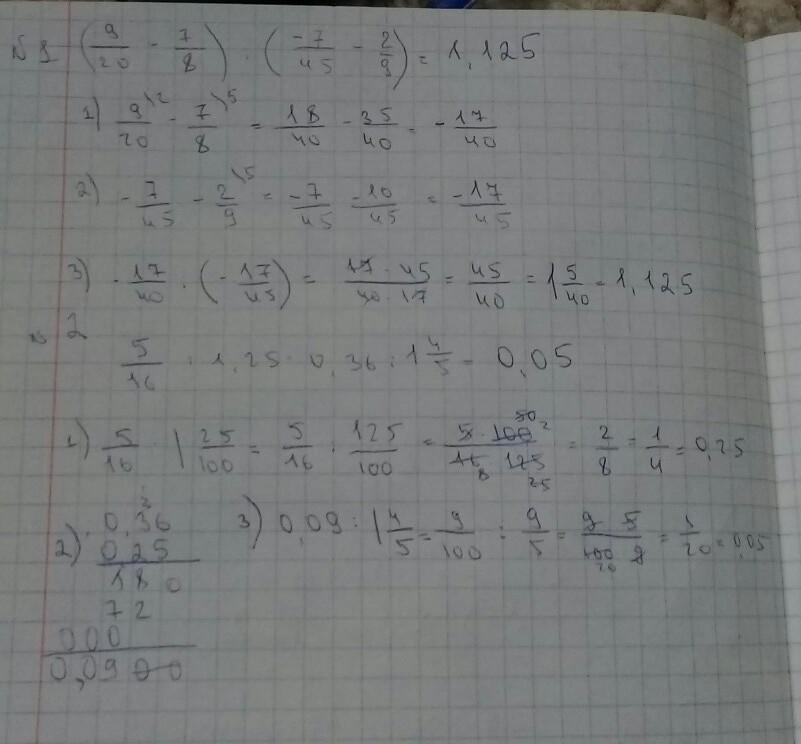 №1 (9/20 - 7/8) · (-7/45 - 2/9) = 1,125
1) 9\2/20 - 7\5/8 = 18/40 - 35/40 = -17/40
2) -7/45 - 2\5/9 = -7/45 -10/45 = -17/45
3) -17/40 · (-17/45) = 17·45/40·17 = 45/40 = 1 5/40 = 1,125
№2
5/16 : 1,25 · 0,36 : 1 4/5 = 0,05
1) 5/16 : 1 25/100 = 5/16 : 125/100 = 5·100/16 125 = 2/8 = 1/4 = 0,25
2) 0,36
0,25
180
72
000
0,0900
3) 0,09 : 1 4/5 = 9/100 : 9/5 = 9 5/100 9 = 1/20 = 0,05